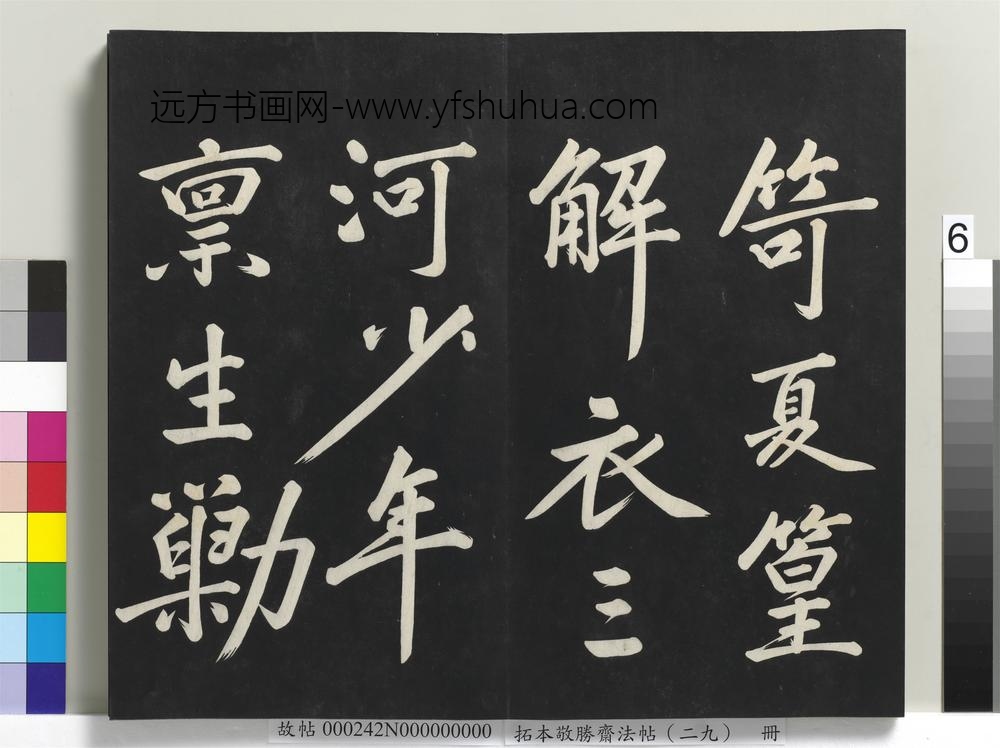 远方书画网-www.yfshuhua.com
笴夏篁
解衣三
河少年
禀生勦
6
故帖 000242N000000000
拓本敬勝齋法帖(二九) 冊